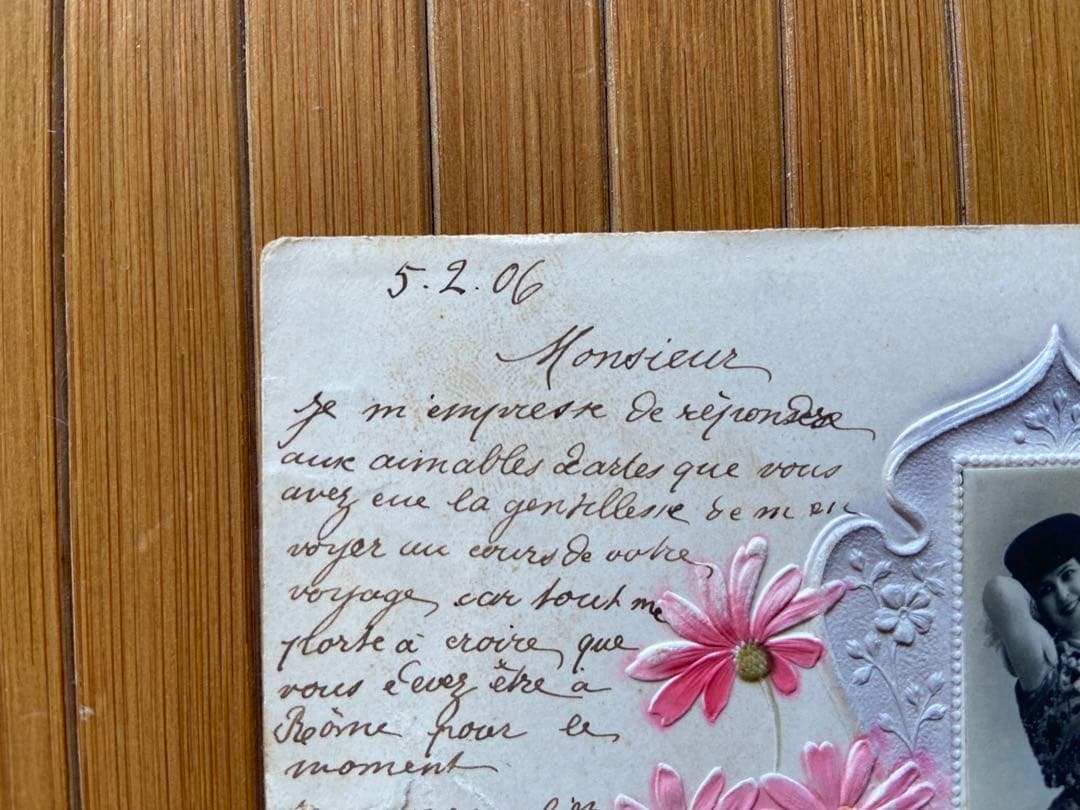 5.2.06
Monsieur
Je m'empresse de répondre
aux aimables cartes que vous
avez eue la gentillesse de m'en
voyer au cours de votre
voyage, car tout me
porte à croire que
vous devez être à
Rôme pour le
moment